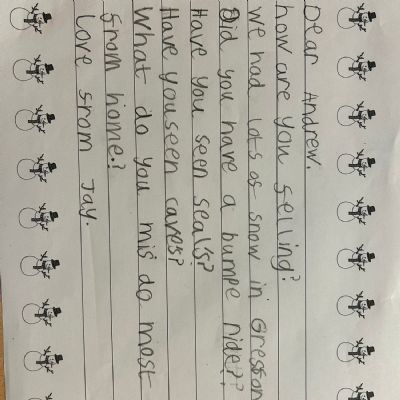 Dear Andrew.
how are you felling?
we had lots of snow in Gresson
Did you have a bumpe ride??
Have you seen seals?
Have you seen caves?
What do you mis do most
from home.?
Love from Jay.